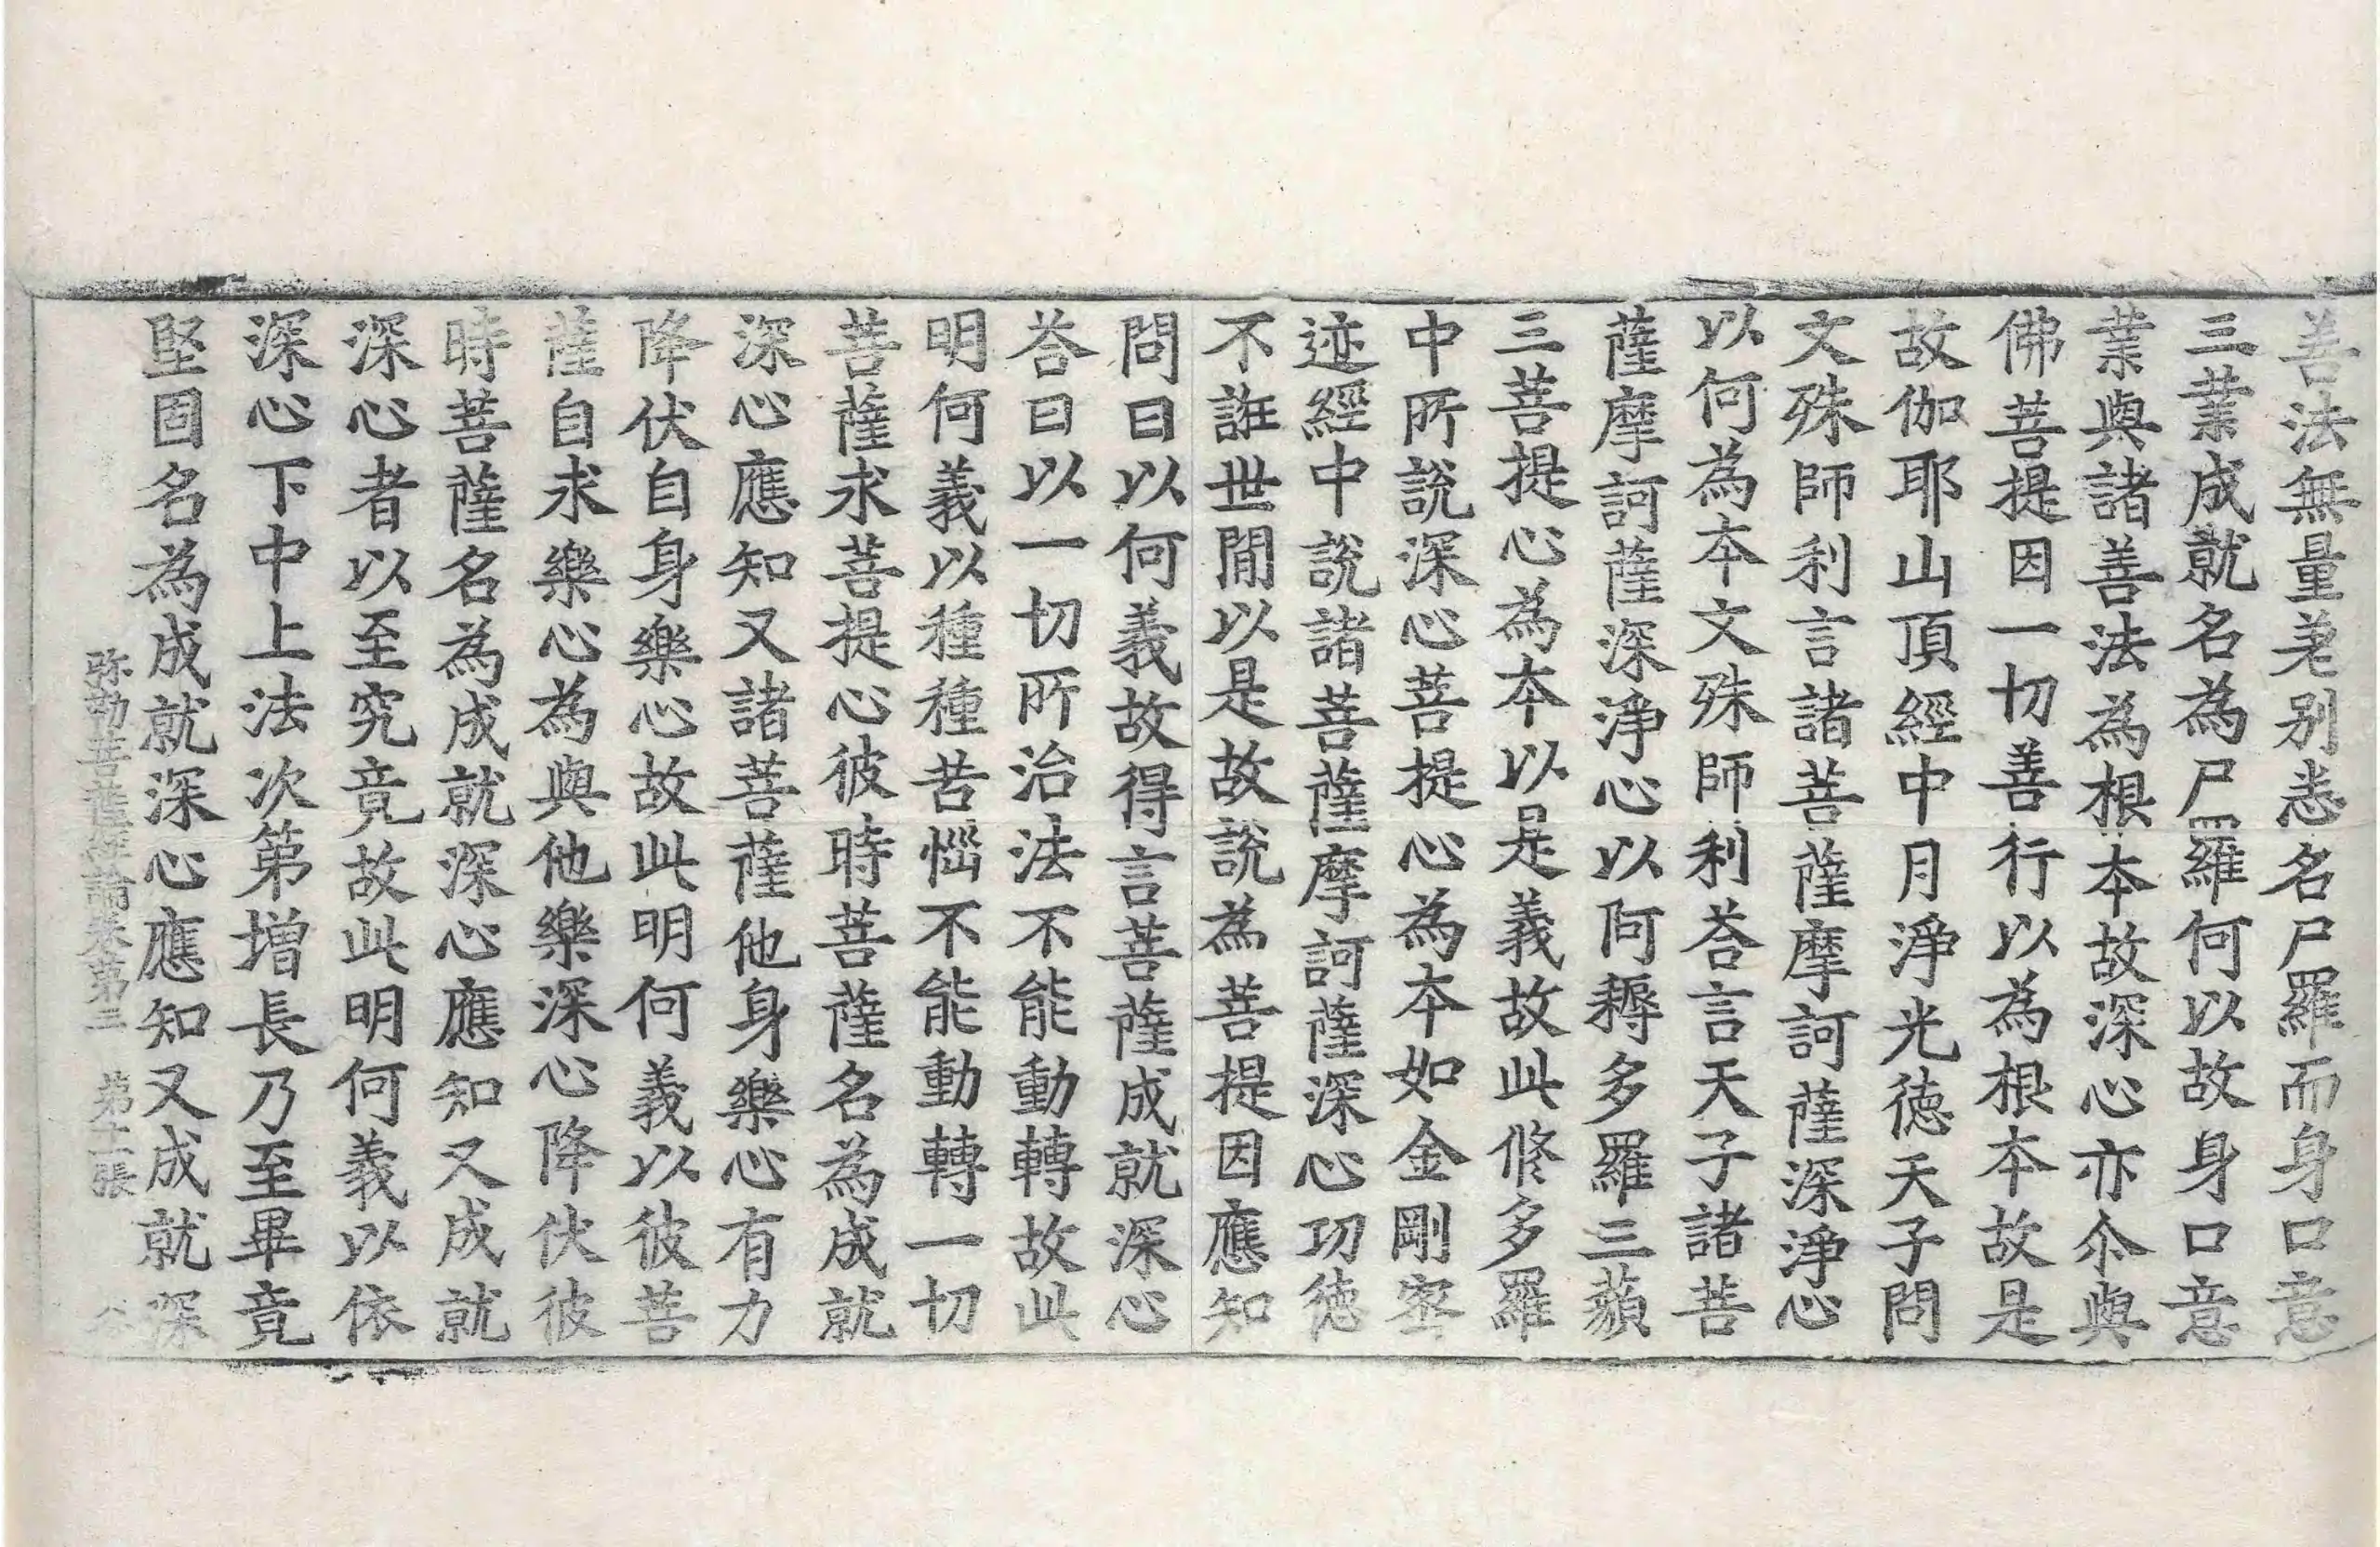 善法無量差别悉名尸羅而身口意
三業成就名為尸羅何以故身口意
業與諸善法為根本故深心亦尒與
佛菩提因一切善行以為根本故是
故伽耶山頂經中月淨光德天子問
文殊師利言諸菩薩摩訶薩深淨心
以何為本文殊師利荅言天子諸菩
薩摩訶薩深淨心以阿耨多羅三藐
三菩提心為本以是義故此修多羅
中所說深心菩提心為本如金剛密
迹經中說諸菩薩摩訶薩深心功德
不誑世間以是故說為菩提因應知
問曰以何義故得言菩薩成就深心
荅曰以一切所治法不能動轉故此
明何義以種種苦惱不能動轉一切
菩薩求菩提心彼時菩薩名為成就
深心應知又諸菩薩他身樂心有力
降伏自身樂心故此明何義以彼菩
薩自求樂心為與他樂深心降伏彼
時菩薩名為成就深心應知又成就
深心者以至究竟故此明何義以依
深心下中上法次第增長乃至畢竟
堅固名為成就深心應知又成就深
弥勒菩薩經論卷第三 第十二張